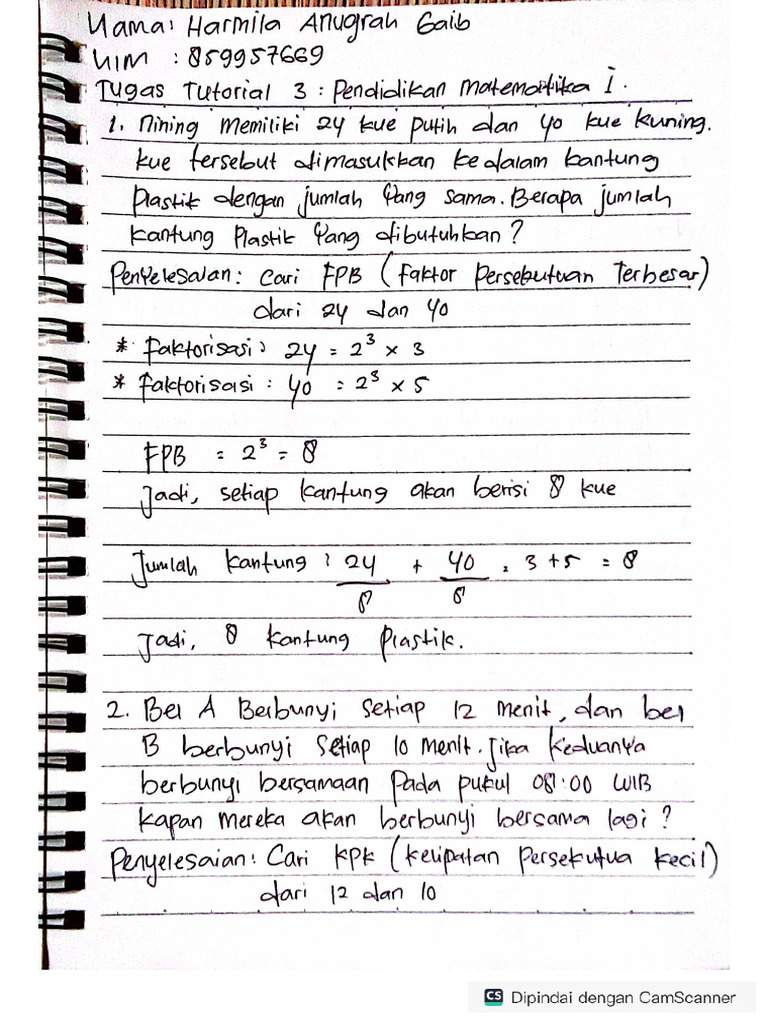 Nama: Harmila Anugrah Gaib
NIM : 859957669
Tugas Tutorial 3 : Pendidikan Matematika I.
1. Nining Memiliki 24 kue putih dan 40 kue kuning.
kue tersebut dimasukkan kedalam kantung
Plastik dengan jumlah Yang sama. Berapa jumlah
kantung Plastik Yang dibutuhkan?
Penyelesaian: Cari FPB (Faktor Persekutuan Terbesar)
dari 24 dan 40
* Faktorisasi : 24 = 2³ × 3
* Faktorisasi : 40 = 2³ × 5
FPB = 2³ = 8
Jadi, setiap kantung akan berisi 8 kue
Jumlah kantung : 24/8 + 40/8 = 3 + 5 = 8
Jadi, 8 kantung Plastik.
2. Bel A Berbunyi Setiap 12 Menit, dan bel
B berbunyi Setiap 10 Menit. Jika Keduanya
berbunyi bersamaan Pada pukul 08:00 WIB
kapan mereka akan berbunyi bersama lagi ?
Penyelesaian: Cari KPK (kelipatan Persekutua kecil)
dari 12 dan 10
CS Dipindai dengan CamScanner